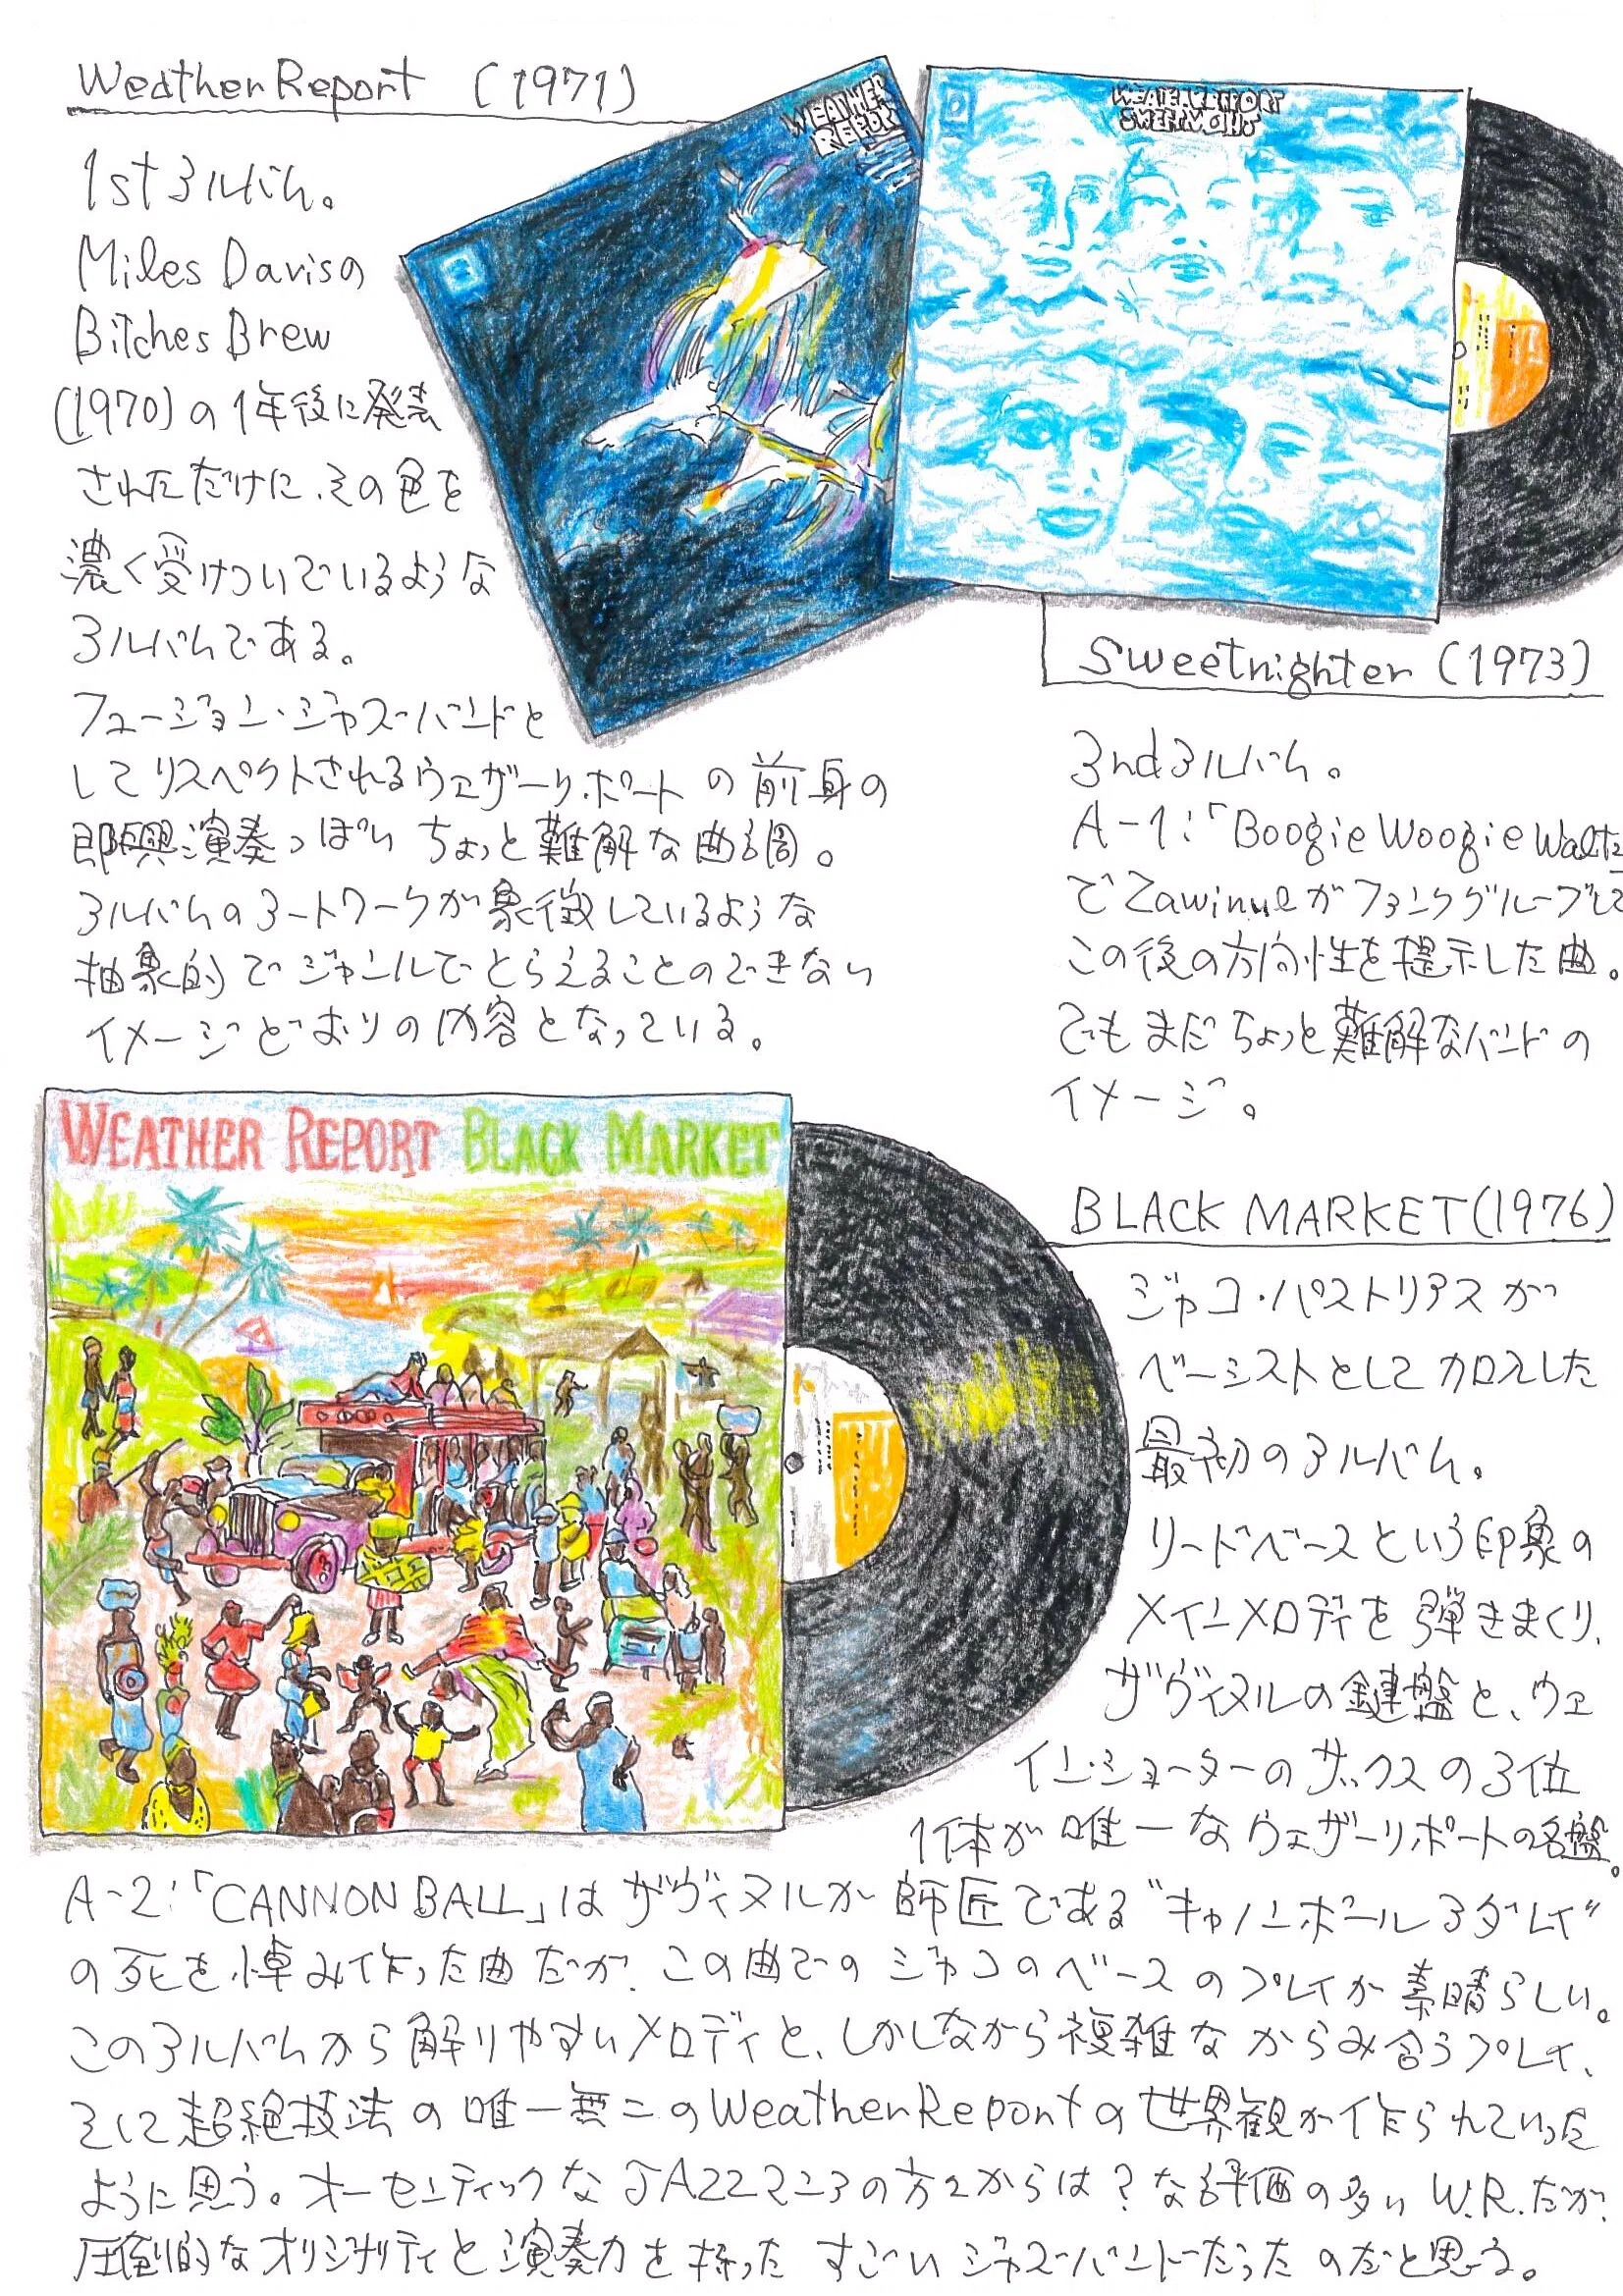 Weather Report (1971)
1st アルバム。
Miles Davisの
Bitches Brew
(1970)の1年後に発表
されただけに、その色を
濃く受けついでいるような
アルバムである。
フュージョン・ジャズ・バンドと
してリスペクトされるウェザーリポートの前身の
即興演奏っぽい ちょっと難解な曲調。
アルバムのアートワークが象徴しているような
抽象的でジャンルでとらえることのできない
イメージどおりの内容となっている。
WEATHER
REPORT
WEATHER REPORT
Sweetnighter (1973)
3ndアルバム。
A-1:「Boogie Woogie Waltz
でZawinulがファンクグルーブして
この後の方向性を提示した曲。
でもまだちょっと難解なバンドの
イメージ。
WEATHER REPORT BLACK MARKET
BLACK MARKET(1976)
ジャコ・パストリアスが
ベーシストとして加入した
最初のアルバム。
リードベースという印象の
メインメロディを弾きまくり、
ザヴィヌルの鍵盤と、ウェ
イン・ショーターのサックスの3位
1体が唯一なウェザーリポートの名盤。
A-2:「CANNON BALL」はザヴィヌルが師匠である“キャノンボールアダレイ”
の死を悼み作った曲だが、この曲でのジャコのベースのプレイが素晴らしい。
このアルバムから解りやすいメロディと、しかしながら複雑なからみ合うプレイ、
そして超絶技法の唯一無二のWeather Reportの世界観が作られていった
ように思う。オーセンティックなJAZZマニアの方々からは?な評価の多い W.R.だが、
圧倒的なオリジナリティと演奏力を持った すごいジャズ・バンドだったのだと思う。